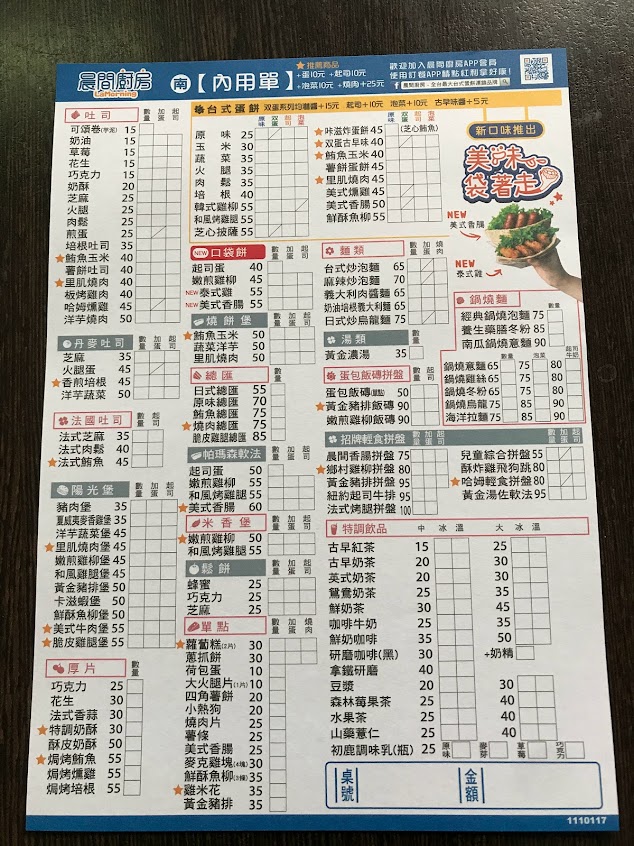 晨間廚房
LaMorning
南【內用單】
★推薦商品
+蛋10元 +起司10元
+泡菜10元 +燒肉+25元
歡迎加入晨間廚房APP會員
使用訂餐APP積點紅利拿好康!
吐司
數量 加蛋 起司
可頌卷(芋泥) 15
奶油 15
草莓 15
花生 15
巧克力 15
奶酥 20
芝麻 25
火腿 25
肉鬆 25
煎蛋 25
培根吐司 35
★鮪魚玉米 40
薯餅吐司 40
★里肌燒肉 40
板烤雞肉 40
哈姆燻雞 45
洋芋燒肉 50
丹麥吐司
數量 加蛋 起司
芝麻 35
火腿蛋 45
★香煎培根 45
洋芋蔬菜 50
法國吐司
數量 加蛋 起司
法式芝麻 35
法式肉鬆 40
★法式鮪魚 45
陽光堡
數量 加蛋 起司
豬肉堡 35
夏威夷麥香雞堡 35
洋芋蔬菜堡 45
★里肌燒肉堡 45
嫩煎雞柳堡 45
和風雞腿堡 45
黃金豬排堡 50
卡滋蝦堡 50
鮮酥魚柳堡 50
★美式牛肉堡 55
★脆皮雞腿堡 55
厚片
數量
巧克力 25
花生 30
法式香蒜 30
★特調奶酥 30
酥皮奶酥 50
★焗烤鮪魚 55
焗烤燻雞 55
焗烤培根 55
台式蛋餅 双蛋系列均增醬+15元 起司+10元 泡菜+10元 古早味醬+5元
原味 双蛋 起司 泡菜
原味 25
玉米 30
蔬菜 35
火腿 35
肉鬆 35
培根 40
韓式雞柳 55
和風烤雞腿 55
芝心披薩 55
原味 双蛋 起司 泡菜
★卡滋炸蛋餅 45 (芝心鮪魚)
★双蛋古早味 40
★鮪魚玉米 40
薯餅蛋餅 45
★里肌燒肉 45
美式燻雞 45
美式香腸 50
鮮酥魚柳 50
NEW 口袋餅
數量 加蛋 起司
起司蛋 40
嫩煎雞柳 45
NEW 泰式雞 55
NEW 美式香腸 55
燒餅堡
數量 加蛋 起司
★鮪魚玉米 50
蔬菜洋芋 50
里肌燒肉 50
總匯
數量 加蛋 起司
日式總匯 55
原味總匯 70
鮪魚總匯 75
★燒肉總匯 75
脆皮雞腿總匯 85
帕瑪森軟法
數量 加蛋 起司
起司蛋 50
嫩煎雞柳 55
和風烤雞 55
★美式香腸 60
米香堡
數量 加蛋 起司
★嫩煎雞柳 50
和風烤雞 55
鬆餅
數量
蜂蜜 25
巧克力 25
芝麻 25
單點
數量 加蛋 燒肉
★蘿蔔糕(2片) 30
蔥抓餅 30
荷包蛋 10
大火腿片(1片) 10
四角薯餅 20
小熱狗 20
燒肉片 25
薯條 25
美式香腸 25
麥克雞塊(4塊) 30
鮮酥魚柳(3條) 35
★雞米花 35
黃金豬排 35
新口味推出
美味
袋著走
NEW
美式香腸
NEW
泰式雞
麵類
數量 加蛋 起司
台式炒泡麵 65
麻辣炒泡麵 70
義大利肉醬麵 65
奶油培根義大利麵 65
日式炒烏龍麵 75
湯類
數量
黃金濃湯 35
蛋包飯磚拼盤
數量 加蛋 起司
蛋包飯磚(單點) 50
★黃金豬排飯磚 90
嫩煎雞柳飯磚 90
鍋燒麵
數量
經典鍋燒泡麵 75
養生藥膳冬粉 85
南瓜鍋燒雞麵 90
數量 泡菜 起司牛奶
鍋燒意麵 65 75 80
鍋燒雞絲 65 75 80
鍋燒冬粉 65 75 80
鍋燒烏龍 75 85 90
海洋拉麵 75 85 90
招牌輕食拼盤
數量 加蛋 起司
晨間香腸拼盤 75
★鄉村雞柳拼盤 80
黃金豬排拼盤 95
紐約起司牛排 95
法式烤腿拼盤 100
數量 加蛋 起司
兒童綜合拼盤 55
酥炸雞飛狗跳 80
★哈姆輕食拼盤 80
黃金湯佐軟法 95
特調飲品 中 冰 溫 大 冰 溫
古早紅茶 15 25
古早奶茶 20 30
英式奶茶 20 30
鴛鴦奶茶 25 35
鮮奶茶 30 45
咖啡牛奶 25 35
鮮奶咖啡 35 50
研磨咖啡(黑) 30 +奶精
拿鐵研磨 40
豆漿 20 30
森林莓果茶 25 40
水果茶 25 40
山藥薏仁 25 40
初鹿調味乳(瓶) 25 原味 麥芽 草莓 巧克力
桌號
金額
1110117